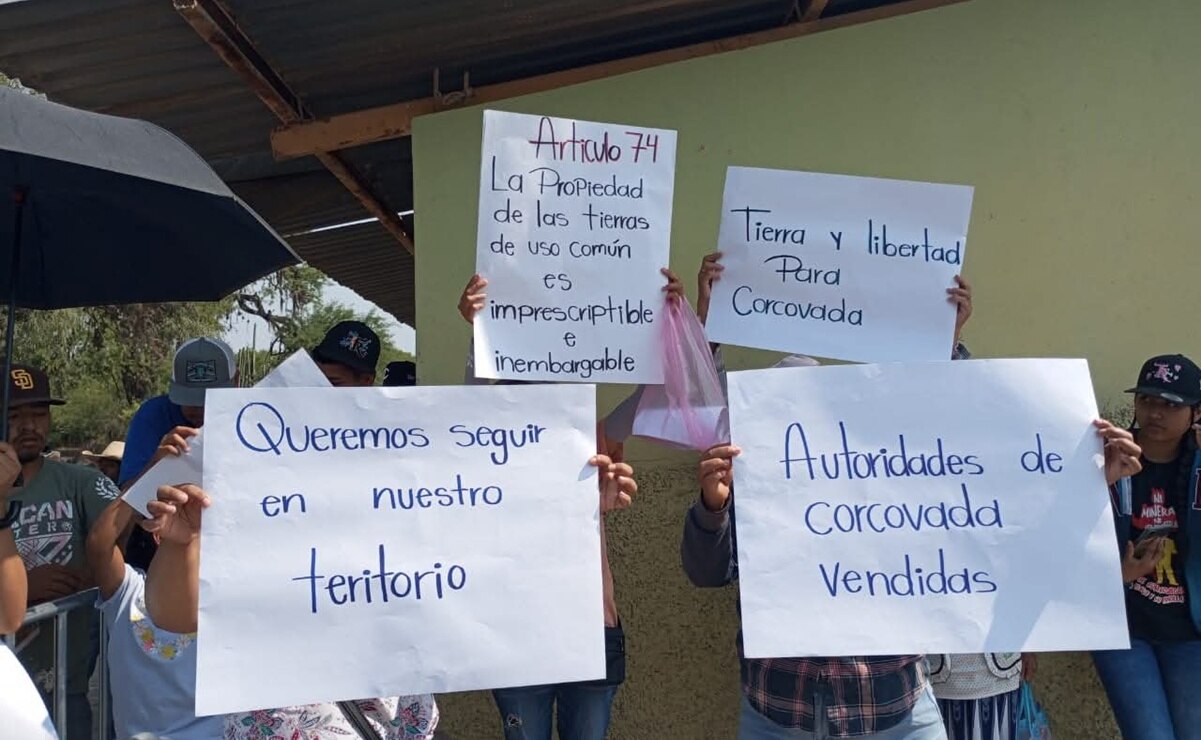 Articulo 74
La Propiedad
de las tierras
de uso común
es
imprescriptible
e
inembargable
Tierra y libertad
Para
Corcovada
Queremos seguir
en nuestro
teritorio
Autoridades de
corcovada
vendidas
NI